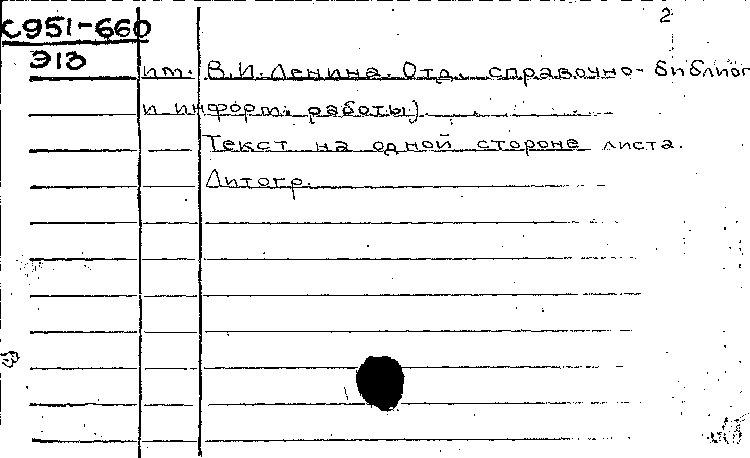 2
С951-660
Э13
им. В.И. Ленина. Отд. справочно-библиог
и информ. работы).
Текст на одной стороне листа.
Литогр.